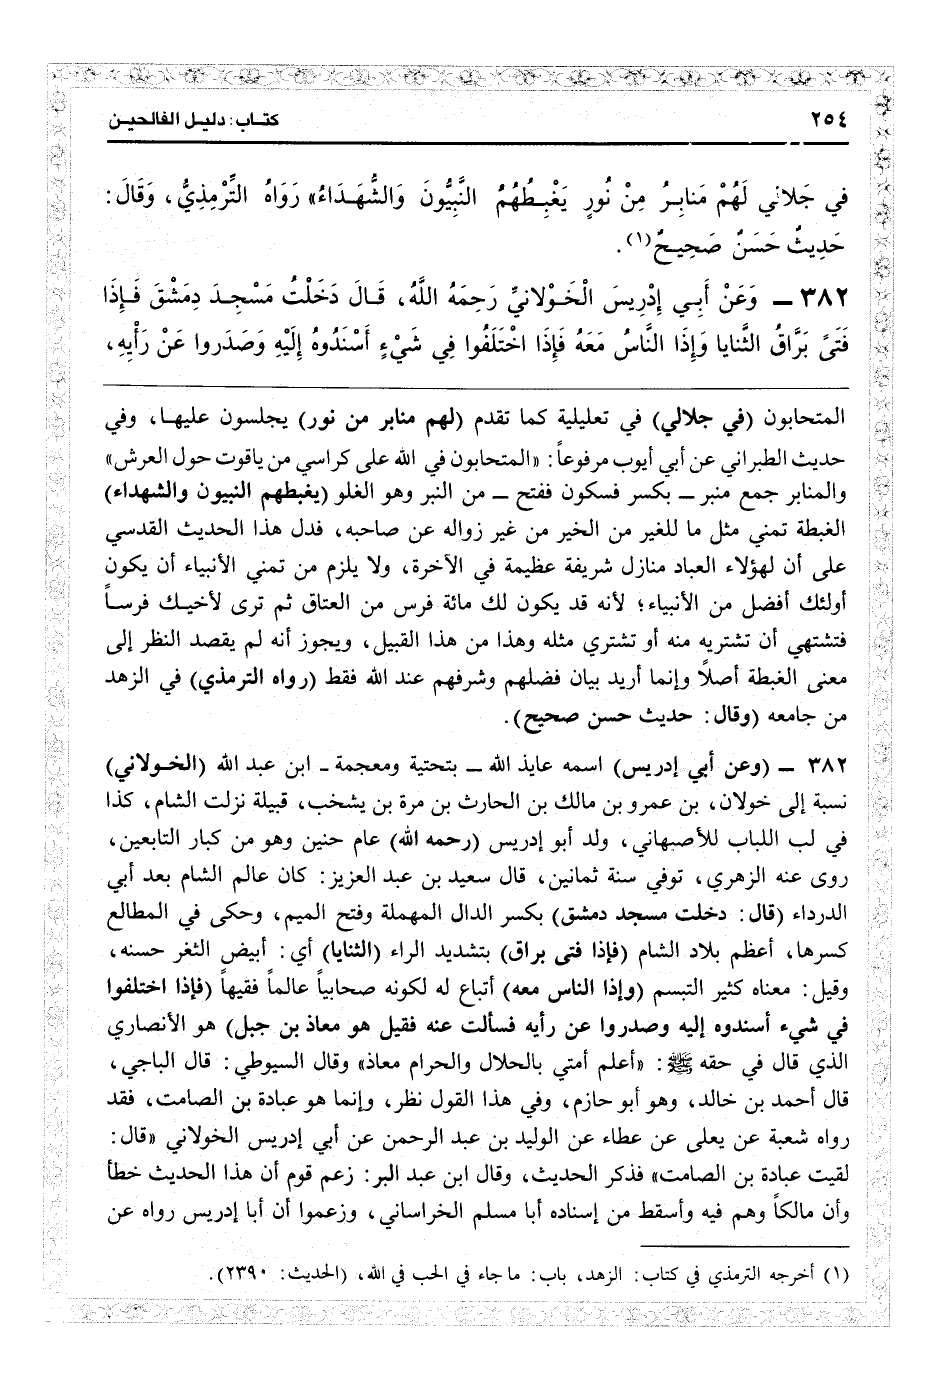 ٢٥٤ كتاب: دليل الفالحين
في جَلَالي لَهُمْ مَنابِرُ مِنْ نُورٍ يَغْبِطُهُمُ النَّبِيُّونَ وَالشُّهَدَاءُ» رَوَاهُ التِّرْمِذِيُّ، وَقَالَ:
حَدِيثٌ حَسَنٌ صَحِيحٌ(١).
٣٨٢ ـ وَعَنْ أَبِي إِدْرِيسَ الْخَوْلانيِّ رَحِمَهُ اللَّهُ، قَالَ دَخَلْتُ مَسْجِدَ دِمَشْقَ فَإِذَا
فَتَىً بَرَّاقُ الثَّنايا وَإِذَا النَّاسُ مَعَهُ فَإِذَا اخْتَلَفُوا فِي شَيْءٍ أَسْنَدُوهُ إِلَيْهِ وَصَدَروا عَنْ رَأْيِهِ،
المتحابون (في جلالي) في تعليلية كما تقدم (لهم منابر من نور) يجلسون عليها، وفي
حديث الطبراني عن أبي أيوب مرفوعاً: «المتحابون في الله على كراسي من ياقوت حول العرش»
والمنابر جمع منبر ـ بكسر فسكون ففتح ـ من النبر وهو الغلو (يغبطهم النبيون والشهداء)
الغبطة تمني مثل ما للغير من الخير من غير زواله عن صاحبه، فدل هذا الحديث القدسي
على أن لهؤلاء العباد منازل شريفة عظيمة في الآخرة، ولا يلزم من تمني الأنبياء أن يكون
أولئك أفضل من الأنبياء؛ لأنه قد يكون لك مائة فرس من العتاق ثم ترى لأخيك فرساً
فتشتهي أن تشتريه منه أو تشتري مثله وهذا من هذا القبيل، ويجوز أنه لم يقصد النظر إلى
معنى الغبطة أصلاً وإنما أريد بيان فضلهم وشرفهم عند الله فقط (رواه الترمذي) في الزهد
من جامعه (وقال: حديث حسن صحيح).
٣٨٢ ـ (وعن أبي إدريس) اسمه عايذ الله ـ بتحتية ومعجمة ـ ابن عبد الله (الخولاني)
نسبة إلى خولان، بن عمرو بن مالك بن الحارث بن مرة بن يشخب، قبيلة نزلت الشام، كذا
في لب اللباب للأصبهاني، ولد أبو إدريس (رحمه الله) عام حنين وهو من كبار التابعين،
روى عنه الزهري، توفي سنة ثمانين، قال سعيد بن عبد العزيز: كان عالم الشام بعد أبي
الدرداء (قال: دخلت مسجد دمشق) بكسر الدال المهملة وفتح الميم، وحكى في المطالع
كسرها، أعظم بلاد الشام (فإذا فتى براق) بتشديد الراء (الثنايا) أي: أبيض الثغر حسنه،
وقيل: معناه كثير التبسم (وإذا الناس معه) أتباع له لكونه صحابياً عالماً فقيهاً (فإذا اختلفوا
في شيء أسندوه إليه وصدروا عن رأيه فسألت عنه فقيل هو معاذ بن جبل) هو الأنصاري
الذي قال في حقه ﷺ: «أعلم أمتي بالحلال والحرام معاذ» وقال السيوطي: قال الباجي،
قال أحمد بن خالد، وهو أبو حازم، وفي هذا القول نظر، وإنما هو عبادة بن الصامت، فقد
رواه شعبة عن يعلى عن عطاء عن الوليد بن عبد الرحمن عن أبي إدريس الخولاني «قال:
لقيت عبادة بن الصامت» فذكر الحديث، وقال ابن عبد البر: زعم قوم أن هذا الحديث خطأ
وأن مالكاً وهم فيه وأسقط من إسناده أبا مسلم الخراساني، وزعموا أن أبا إدريس رواه عن
(١) أخرجه الترمذي في كتاب: الزهد، باب: ما جاء في الحب في الله، (الحديث: ٢٣٩٠).